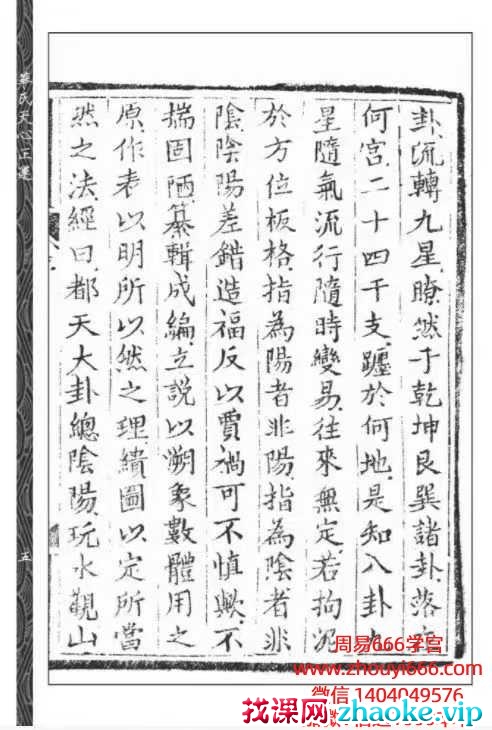 卦流轉九星瞭然于乾坤艮巽諸卦落
何宮二十四干支躔於何地是知八卦九
星隨氣流行隨時變易往來無定若拘泥
於方位板格指為陽者非陽指為陰者非
陰陰陽差錯造福反以賈禍可不慎歟不
揣固陋纂輯成編立説以溯象數體用之
原作表以明所以然之理繢圖以定所當
然之法經曰都天大卦總陰陽玩水觀山
氏天心正運
五
周易666学宫
www.zhouyi666.com
微信 1404049576
找课网zhaoke.vip